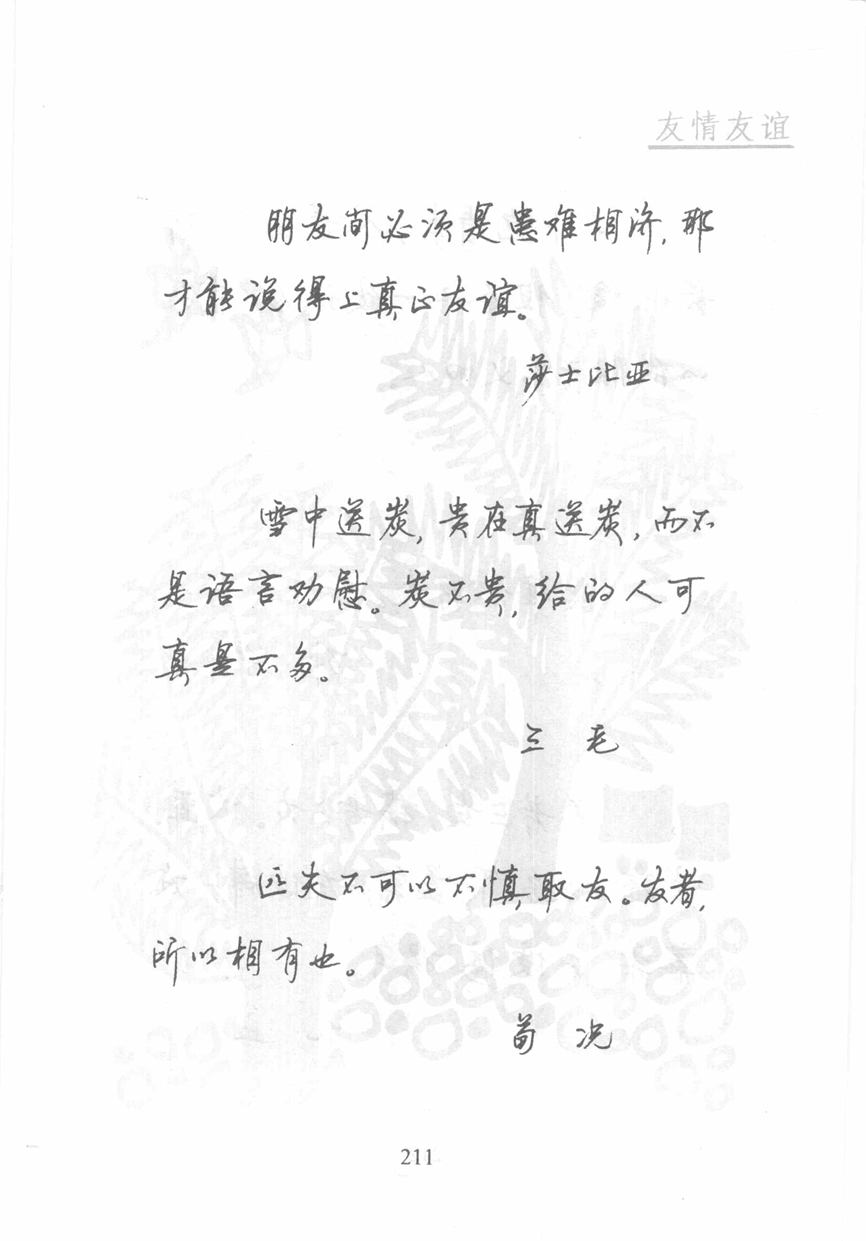 友情友谊
朋友间必须是患难相济,那
才能说得上真正友谊。
莎士比亚
雪中送炭,贵在真送炭,而不
是语言劝慰。炭不贵,给的人可
真是不多。
三毛
匹夫不可以不慎取友。友者,
所以相有也。
荀况
211